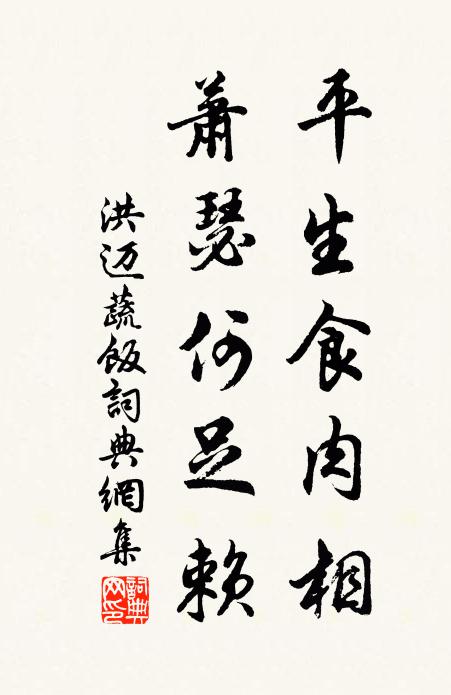 平生食肉相
蕭瑟何足賴
洪迈蔬飯詞典網集
詞典網印